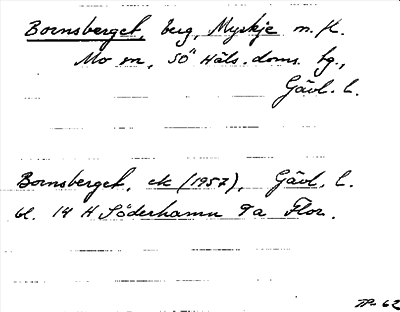 Bornsberget, berg, Myskje m.fl.
Mo sn, SÖ Häls. doms. tg.,
Gävl. l.
Bornsberget, ek (1957), Gävl. l.
bl. 14 H Söderhamn 9a Flor.
62